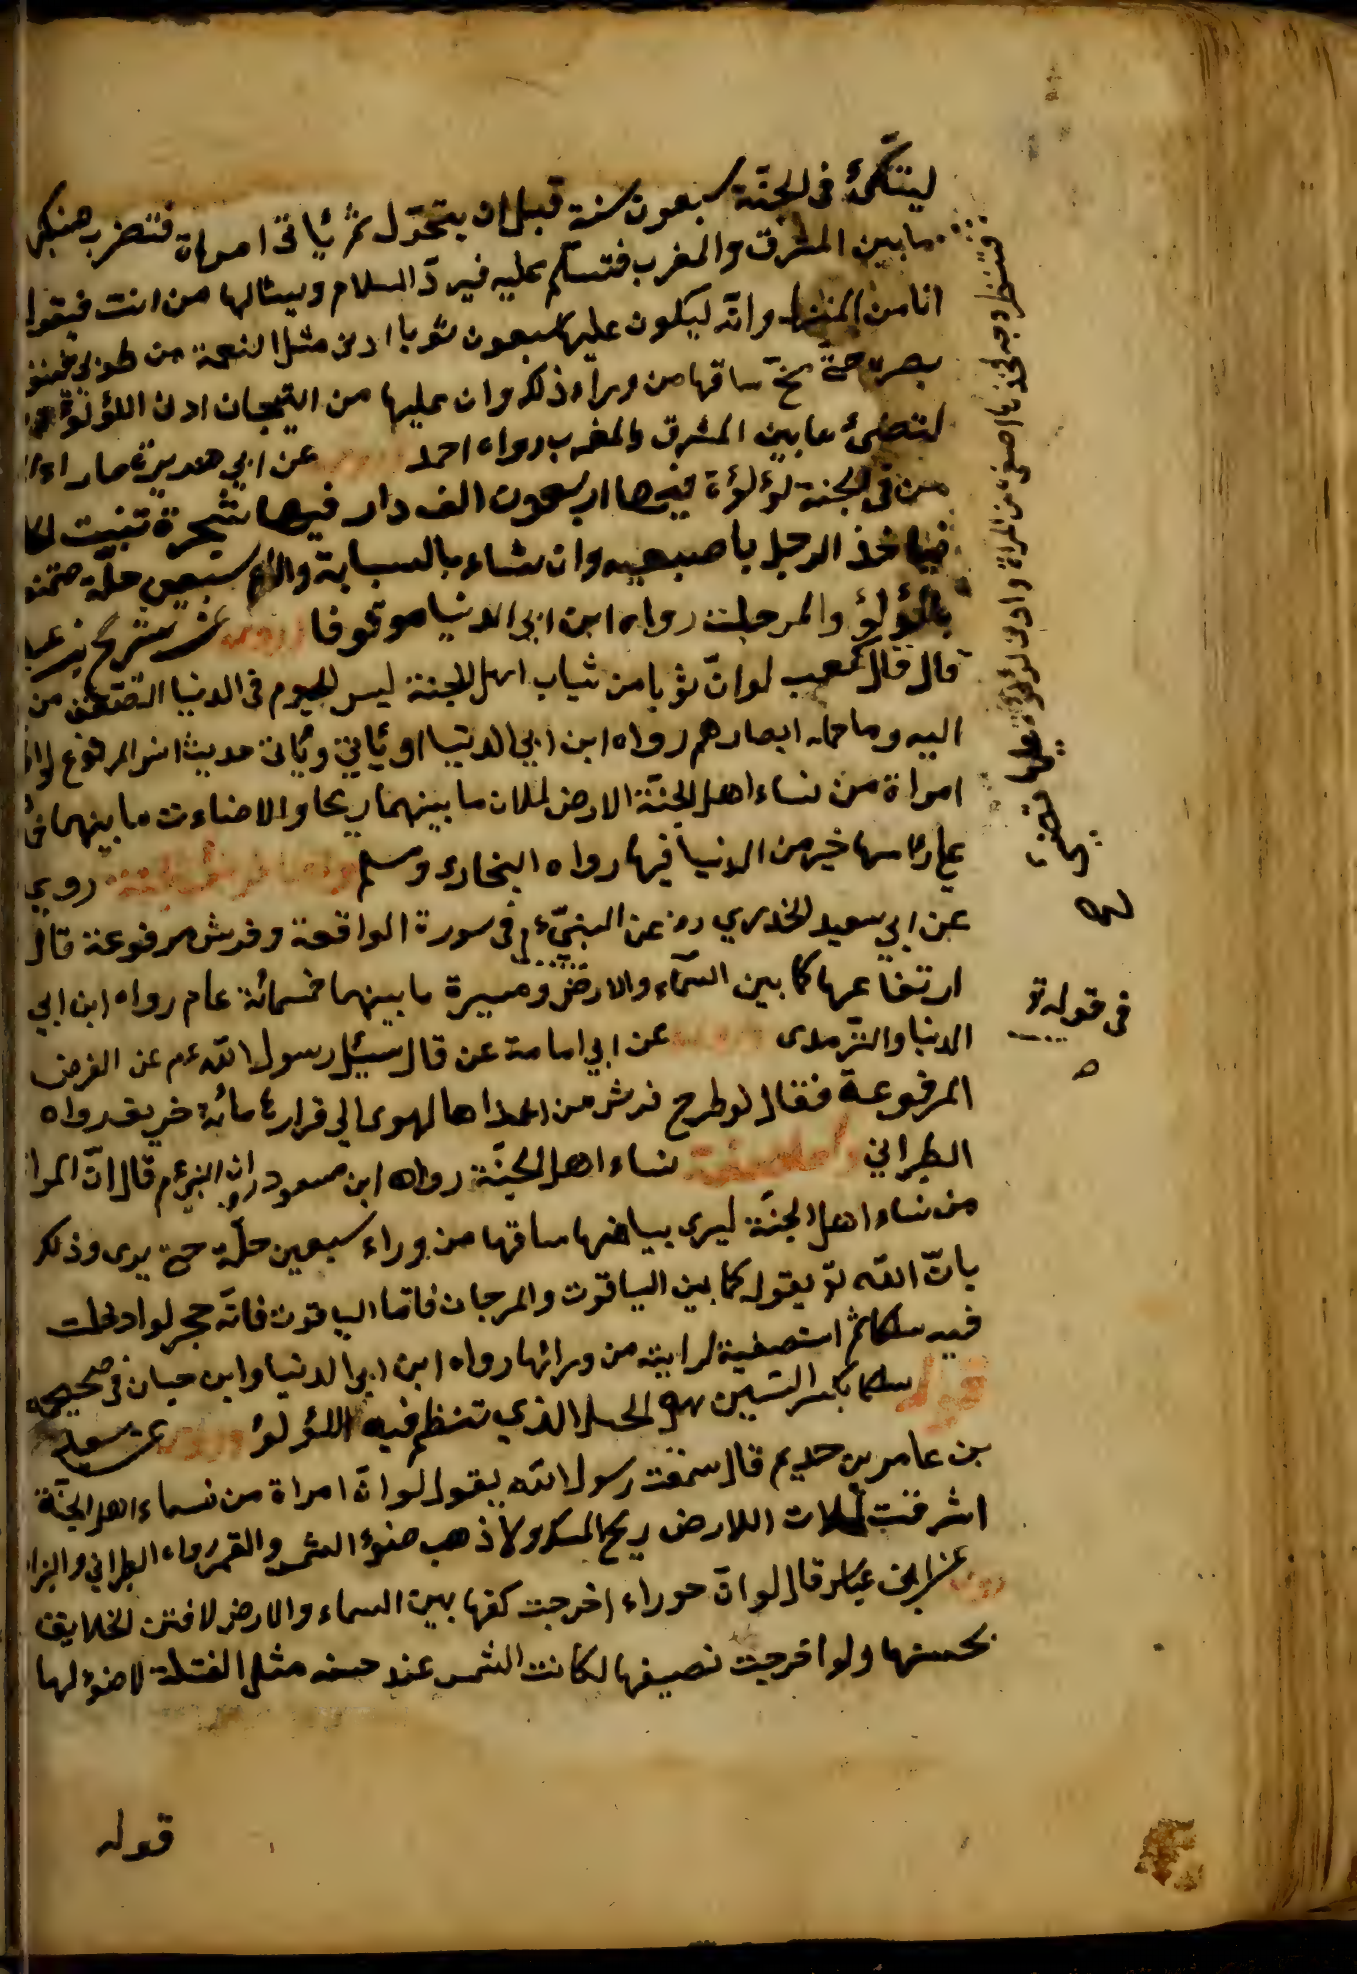 ليتكئ فى الجنّة سبعون سنة قبل ان يتحوّل ثم ياتى امراة فتضرب منكبى
ما بين المشرق والمغرب فتسلّم عليه فيردّ السلام ويسالها من انت فيقول
انا من المزيد وانّه ليكون عليها سبعون ثوبا ادنى مثل النعمة من طوبى فينفذ
بصره حتى مخّ ساقها من وراء ذلك وان عليها من التيجان ادنى اللؤلؤة
لتضئ ما بين المشرق والمغرب رواه احمد عن ابي هريرة
من فى الجنة لؤلؤة فيها اربعون الف دار فيها شجرة تنبت
فياخذ الرجل باصبعيه وان شاء بالسبابة سبعين حلّة
باللؤلؤ والمرجان رواه ابن ابى الدنيا موقوفا وروى عن شريح بن
قال قال كعب لو انّ ثوبا من ثياب اهل الجنة ليس اليوم فى الدنيا لصعق من
اليه وما حمله ابصارهم رواه ابن ابي الدنيا وياتى حديث انس المرفوع
امراة من نساء اهل الجنّة الارض لملات ما بينهما ريحا والاضاءت ما بينهما
على راسها خير من الدنيا فيها رواه البخارى ومسلم روي
عن ابي سعيد الخدري رض عن النبيّ عم فى سورة الواقعة وفرش مرفوعة قال
ارتفاعها كما بين السّماء والارض ومسيرة ما بينهما خمسمائة عام رواه ابن ابي
الدنيا والترمدى عن ابي امامة عن قال سئل رسول الله عم عن الفرش
المرفوعة فقال لو طرح فرش من اعلاها لهوى الى قرارها مائة خريف رواه
الطبراني نساء اهل الجنّة رواه ابن مسعود ان النبي عم قال انّ المراة
من نساء اهل الجنّة ليرى بياضها ساقها من وراء سبعين حلّة حتى يرى وذلك
بانّ الله تع يقوله كما بين الياقوت والمرجان فامّا الياقوت فانّه حجر لو ادخلت
فيه سلكا ثم استصفيته لرايته من ورائها رواه ابن ابى الدنيا وابن حبان فى صحيحه
قوله سلكا بكسر السّين الذي تنظم فيه اللؤلؤ وروى عن سعيد
بن عامر بن حديم قال سمعت رسول الله يقول لو انّ امراة من نساء اهل الجنّة
اشرفت لملات اللارض ريح المسك ولاذهب ضوء الشمس والقمر رواه الطبراني والبزار
روى عن ابن عباس قال لو انّ حوراء اخرجت كفها بين السماء والارض لافتن الخلايق
بحسنها ولو اخرجت نصيفها لكانت الشمس عند حسنه مثل الفتلة لا ضوء لها
قوله
فى قوله تع